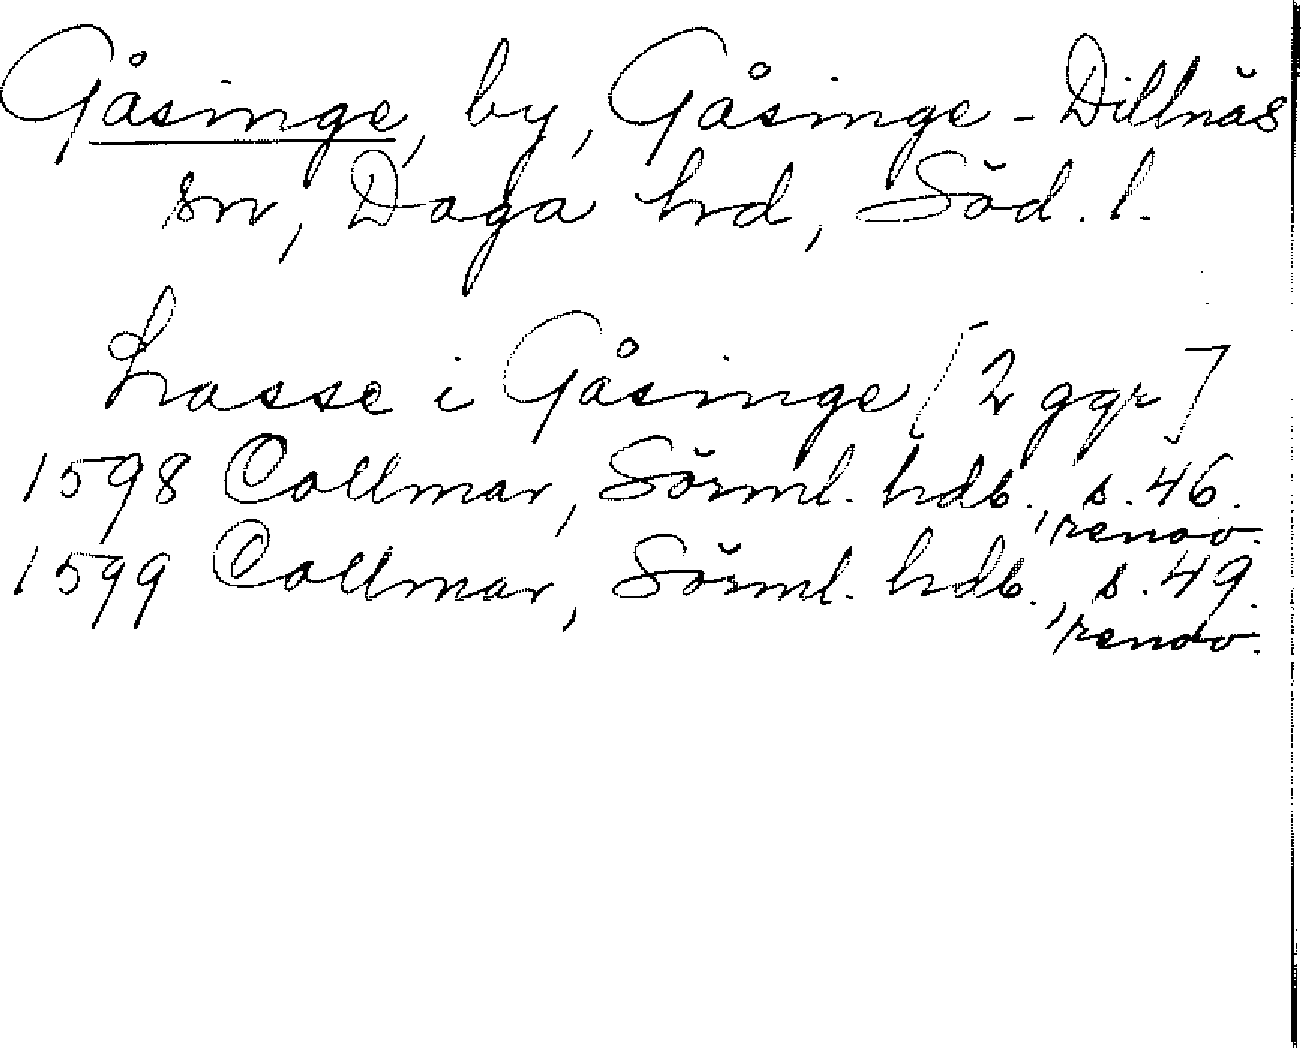 Gåsinge, by, Gåsinge-Dillnäs
sn, Daga hrd, Söd. l.
Lasse i Gåsinge [2 ggr]
1598 Collmar, Sörml. hdb., s. 46.
renov.
1599 Collmar, Sörml. hdb., s. 49.
renov.